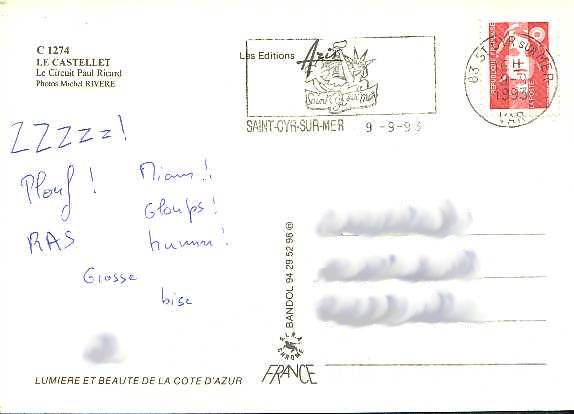 C 1274
LE CASTELLET
Le Circuit Paul Ricard
Photos Michel RIVERE
Les Editions Aris
Saint Cyr sur Mer
SAINT-CYR-SUR-MER 9-9-93
83 ST CYR SUR MER
1993
VAR
REPUBLIQUE FRANÇAISE
LA POSTE
ZZzzz!
Plouf! Miam!!
Gloups!
RAS humm!
Grosse
bise
BANDOL 94 29 52 98 ©
CHROME
FRANCE
LUMIERE ET BEAUTE DE LA COTE D'AZUR